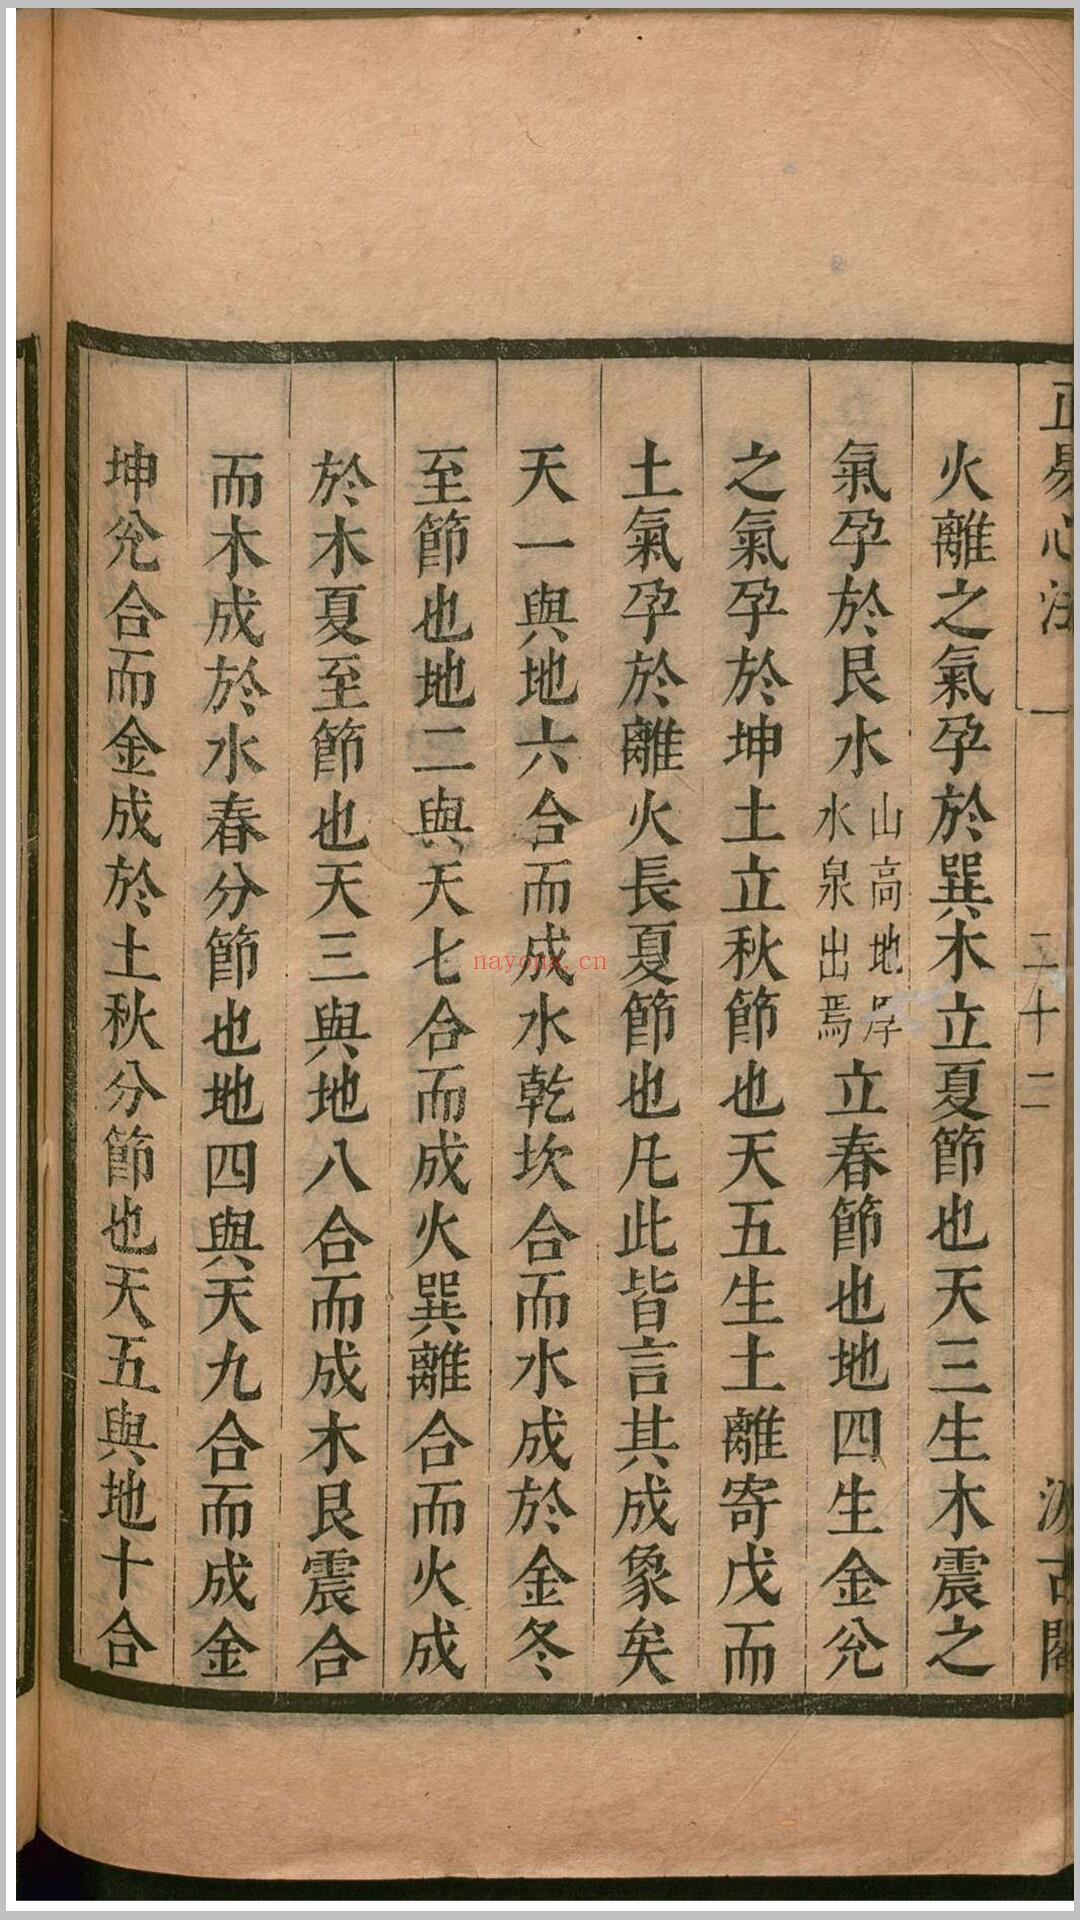 正易心注 一 二十二 汲古閣
火離之氣孕於巽木立夏節也天三生木震之
氣孕於艮水山高地厚水泉出焉立春節也地四生金兊
之氣孕於坤土立秋節也天五生土離寄戊而
土氣孕於離火長夏節也凡此皆言其成象矣
天一與地六合而成水乾坎合而水成於金冬
至節也地二與天七合而成火巽離合而火成
於木夏至節也天三與地八合而成木艮震合
而木成於水春分節也地四與天九合而成金
坤兊合而金成於土秋分節也天五與地十合
nayona.cn